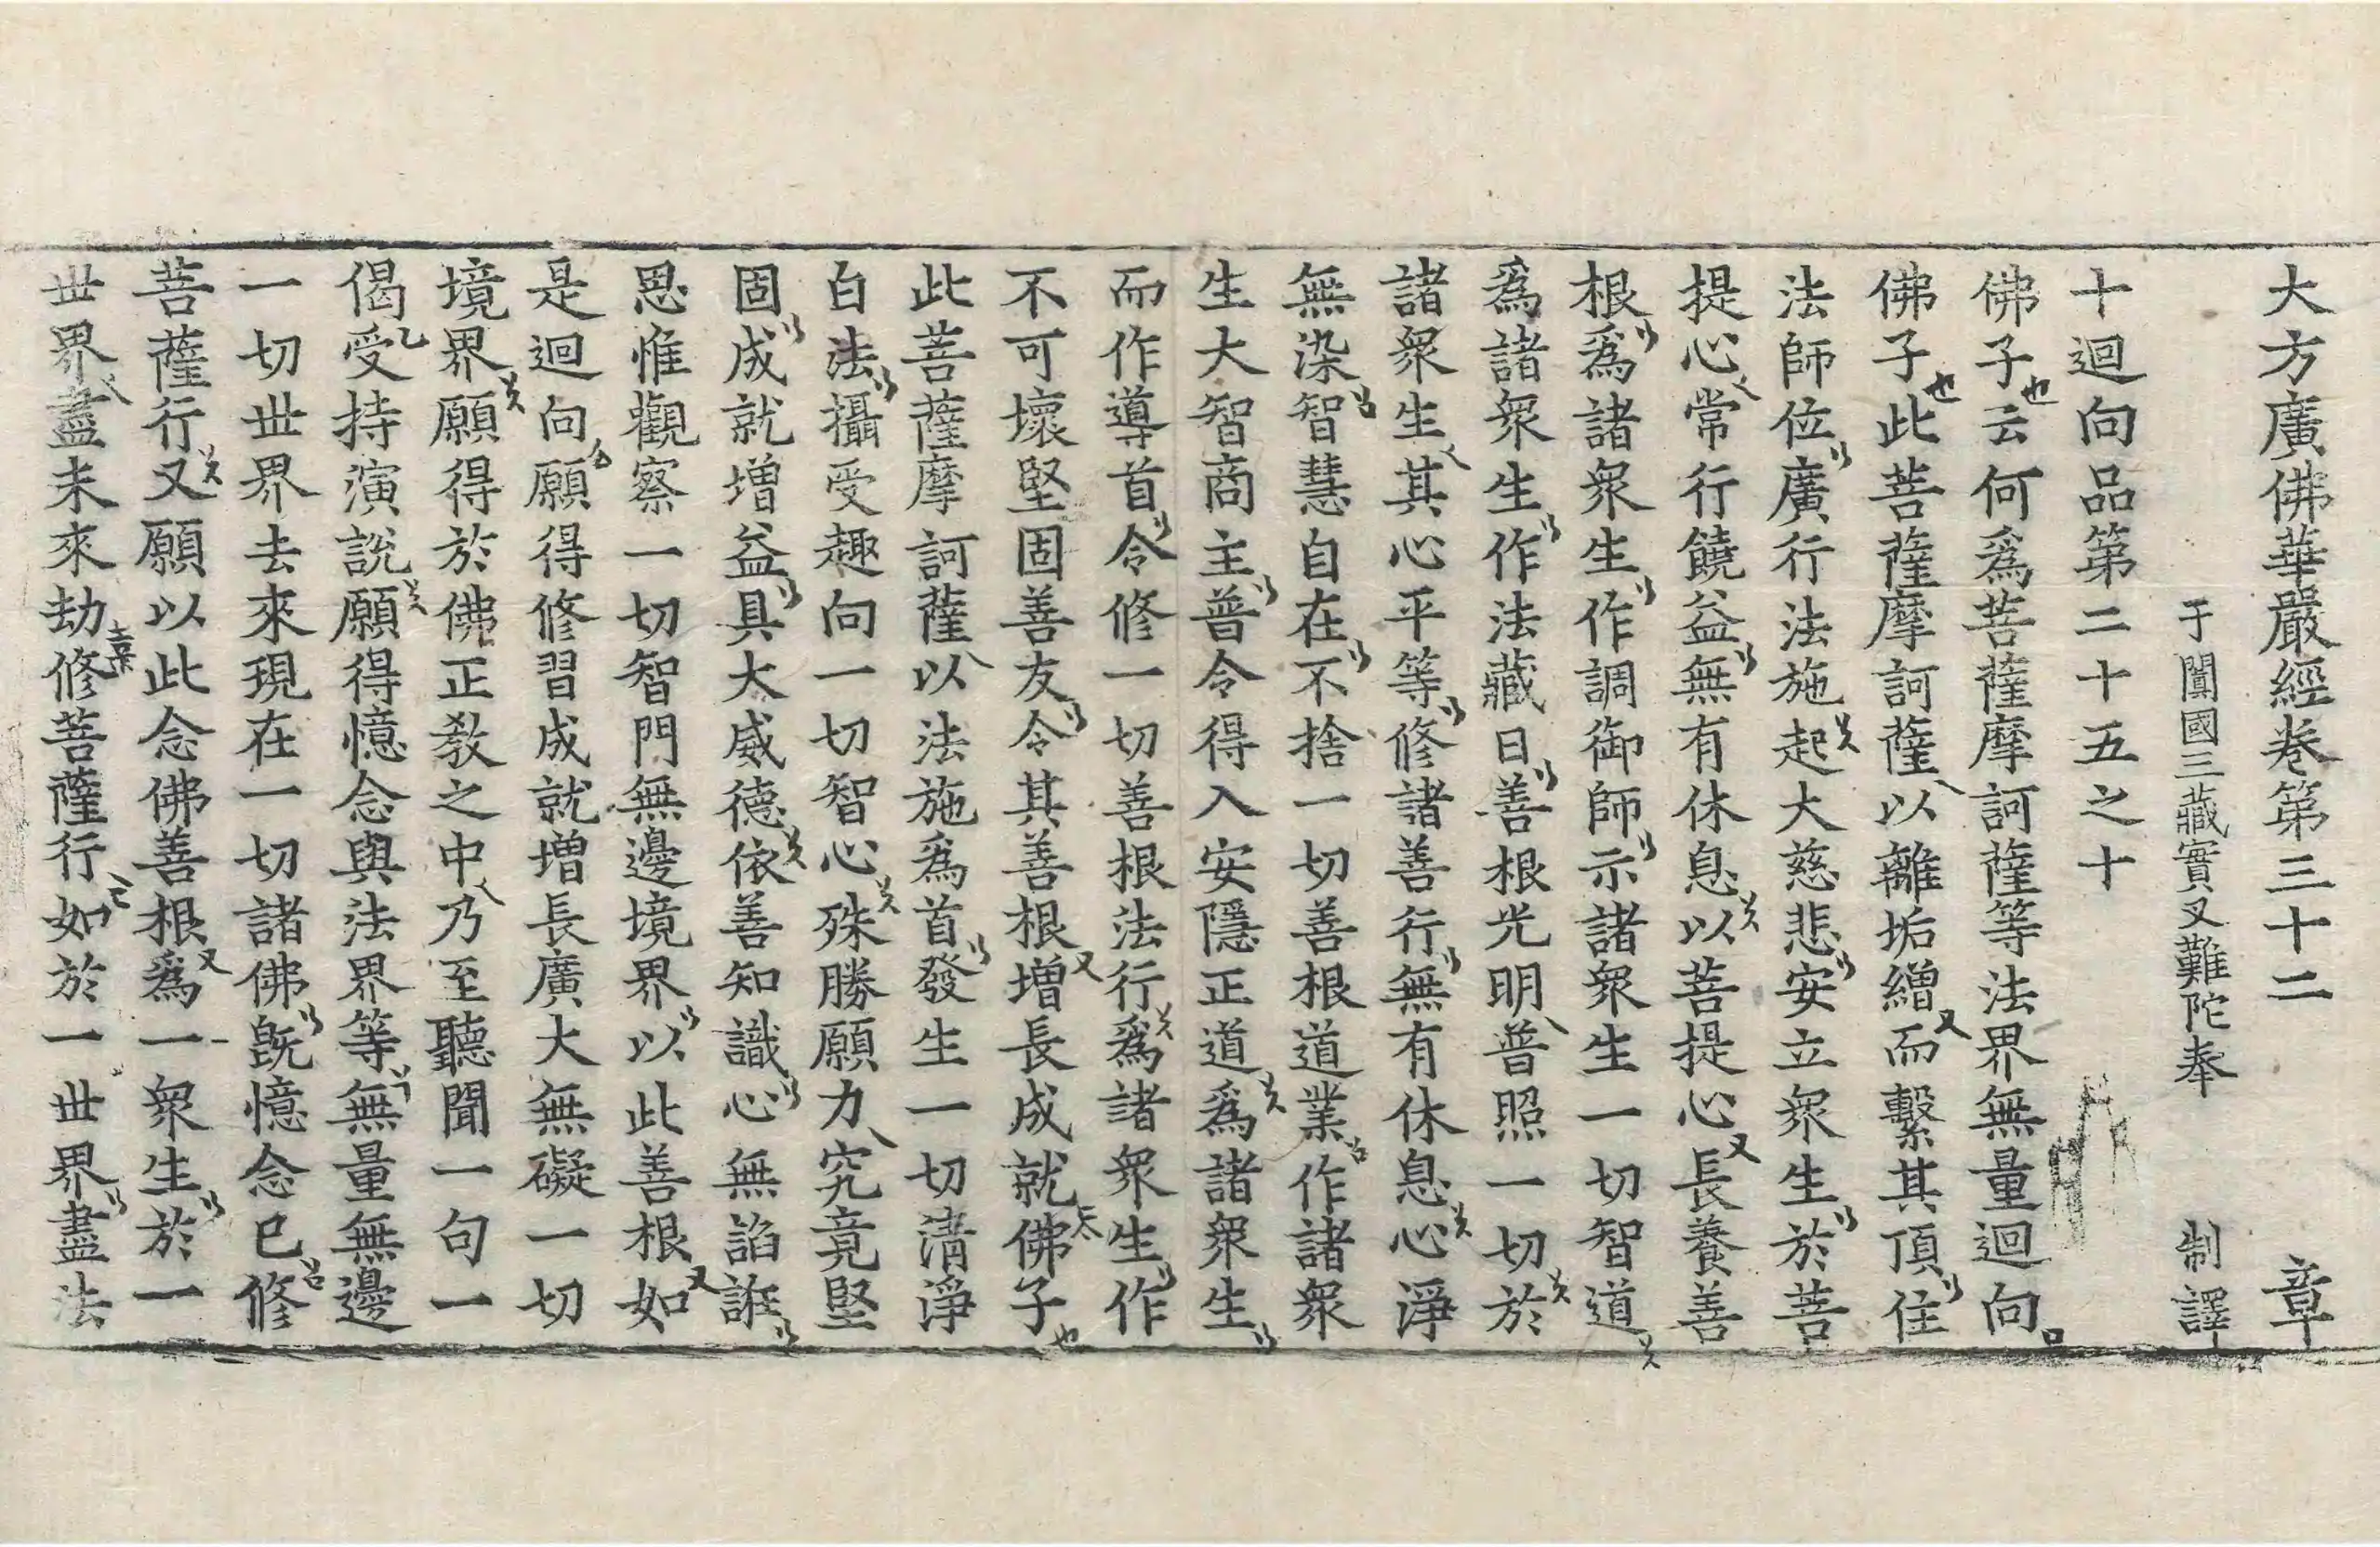 大方廣佛華嚴經卷第三十二 章
于闐國三藏實叉難陀奉 制譯
十迴向品第二十五之十
佛子云何爲菩薩摩訶薩等法界無量迴向
佛子此菩薩摩訶薩以離垢繒而繫其頂住
法師位廣行法施起大慈悲安立衆生於菩
提心常行饒益無有休息以菩提心長養善
根爲諸衆生作調御師示諸衆生一切智道
爲諸衆生作法藏日善根光明普照一切於
諸衆生其心平等修諸善行無有休息心淨
無染智慧自在不捨一切善根道業作諸衆
生大智商主普令得入安隱正道爲諸衆生
而作導首令修一切善根法行爲諸衆生作
不可壞堅固善友令其善根增長成就佛子
此菩薩摩訶薩以法施爲首發生一切清淨
白法攝受趣向一切智心殊勝願力究竟堅
固成就增益具大威德依善知識心無諂誑
思惟觀察一切智門無邊境界以此善根如
是迴向願得修習成就增長廣大無礙一切
境界願得於佛正教之中乃至聽聞一句一
偈受持演說願得憶念與法界等無量無邊
一切世界去來現在一切諸佛旣憶念已修
菩薩行又願以此念佛善根爲一衆生於一
世界盡未來劫修菩薩行如於一世界盡法